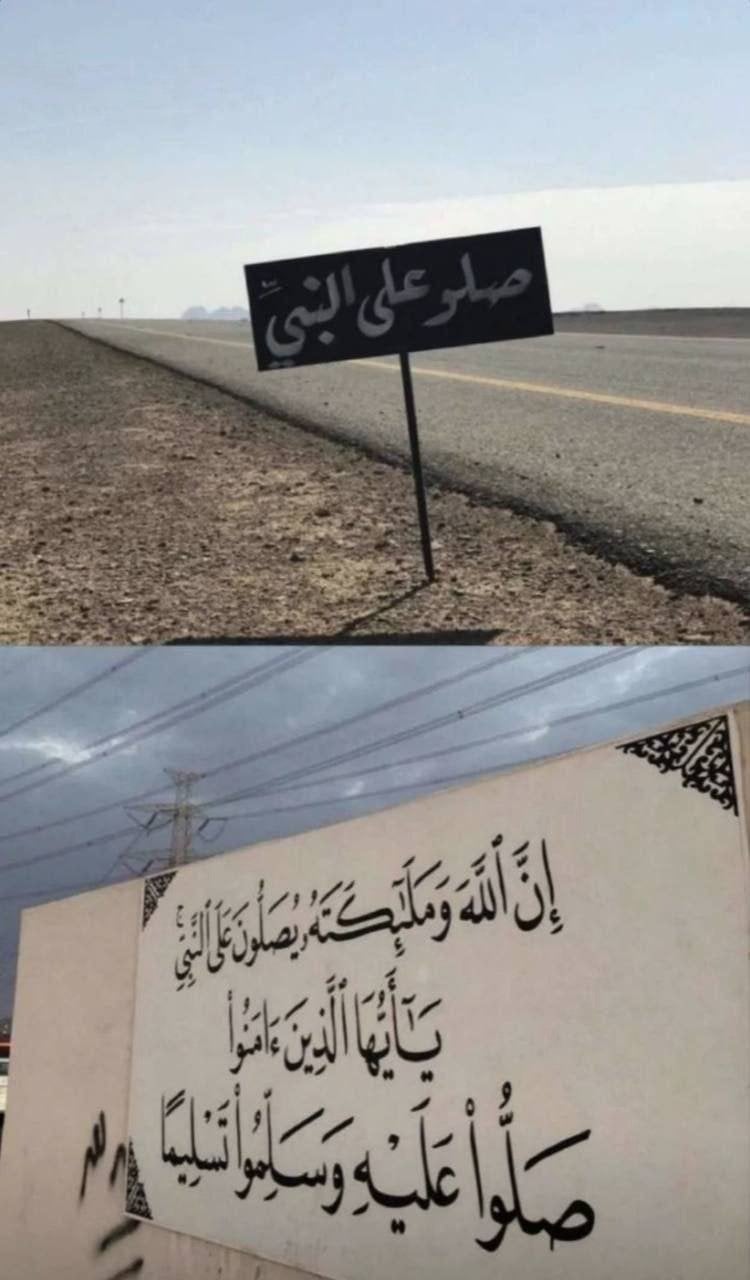 صلو على النبيّ
إِنَّ ٱللَّهَ وَمَلَـٰٓئِكَتَهُۥ يُصَلُّونَ عَلَى ٱلنَّبِىِّ ۚ
يَـٰٓأَيُّهَا ٱلَّذِينَ ءَامَنُوا۟
صَلُّوا۟ عَلَيْهِ وَسَلِّمُوا۟ تَسْلِيمًا